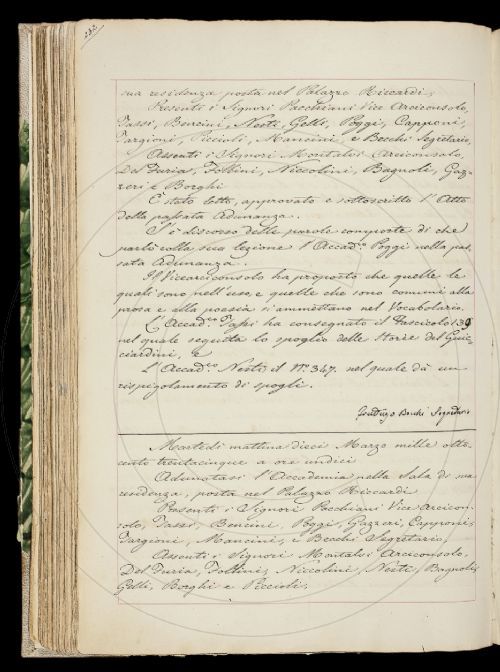 232
sua residenza posta nel Palazzo Riccardi;
Presenti i Signori Pacchiani Vice Arciconsolo,
Tassi, Bencini, Nesti, Gelli, Poggi, Capponi,
Targioni, Piccioli, Mancini, e Becchi Segretario,
Assenti i Signori Montalvi Arciconsolo,
Del Furia, Follini, Niccolini, Bagnoli, Gaz-
zeri e Borghi
È stato letto, approvato e sottoscritto l'Atto
della passata Adunanza.
S'è discorso delle parole composte di che
parlò colla sua lezione l'Accad.co Poggi nella pas
sata Adunanza.
Il Vicearciconsolo ha proposto che quelle le
quali sono nell'uso, e quelle che sono comuni alla
prosa e alla poesia si ammettano nel Vocabolario.
L'Accad.co Tassi ha consegnato il Fascicolo 39
nel quale seguita lo spoglio delle Storie del Guic-
ciardini, e
L'Accad.co Nesti il N.o 347. nel quale dà un
rispigolamento di spogli.
Fruttuoso Becchi Segretario
Martedì mattina dieci Marzo mille otto-
cento trentacinque a ore undici
Adunatasi l'Accademia nella Sala di sua
residenza, posta nel Palazzo Riccardi
Presenti i Signori Pacchiani Vice Arcicon-
solo, Tassi, Bencini, Poggi, Gazzeri, Capponi,
Targioni, Mancini, e Becchi Segretario,
Assenti i Signori Montalvi Arciconsolo,
Del Furia, Follini, Niccolini, Nesti, Bagnoli,
Gelli, Borghi e Piccioli;